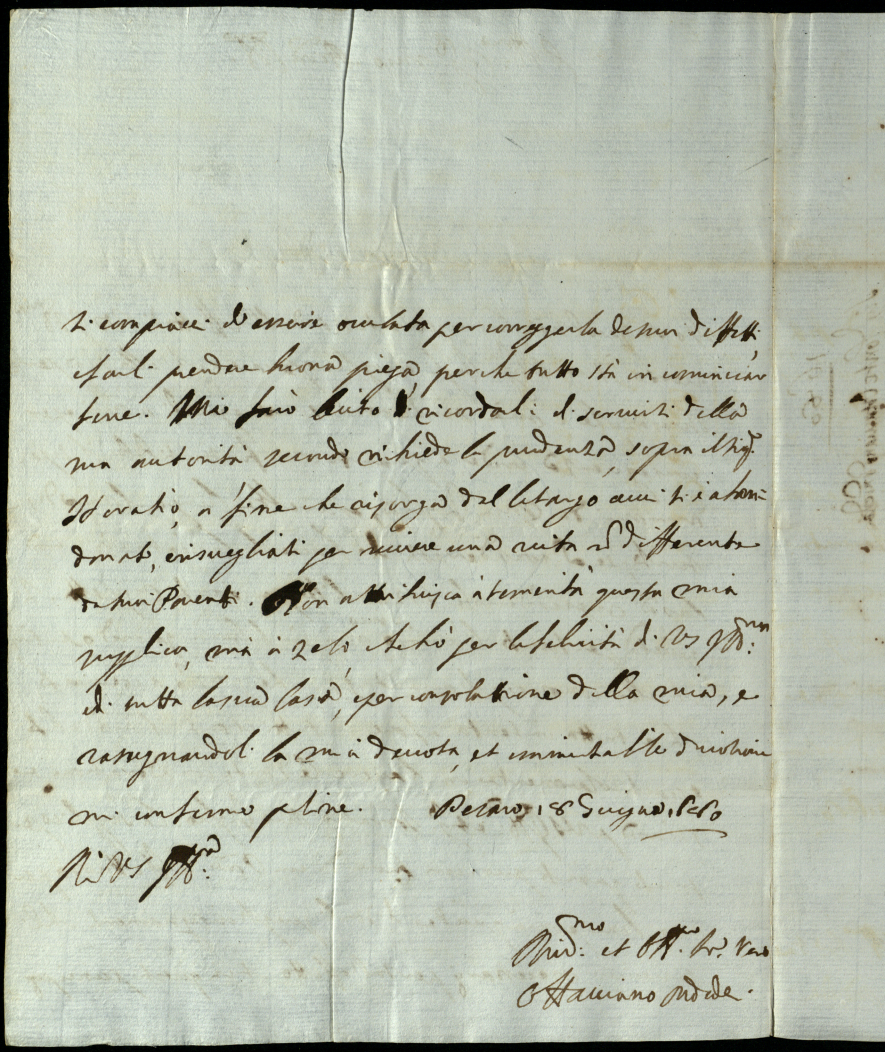 ti compiacci d'essere oculata per correggerla de suoi diffetti,
e farli prendere buona piega, perche tutto stà in cominciar
bene. Mi farò lecito di ricordarli di servirsi della
sua autorità secondo richiede la prudenza, sopra il Sig.r
Horatio, a fine che risorga dal letargo
donato, e risvegliati per vivere una vita differente
da suoi Parenti. Non attribuisca à temerità questa mia
supplica, mà à zelo, che hò per la felicità di VS Ill.ma
e di tutta la sua Casa, e per consolattione della mia, e
rasegnandoli la mia devota, et immutabile divotione
mi confermo p fine. Pesaro 18 Giugno
Di VS Ill.ma
Div.mo et Obl.mo Sr. Vero
Ottaviano